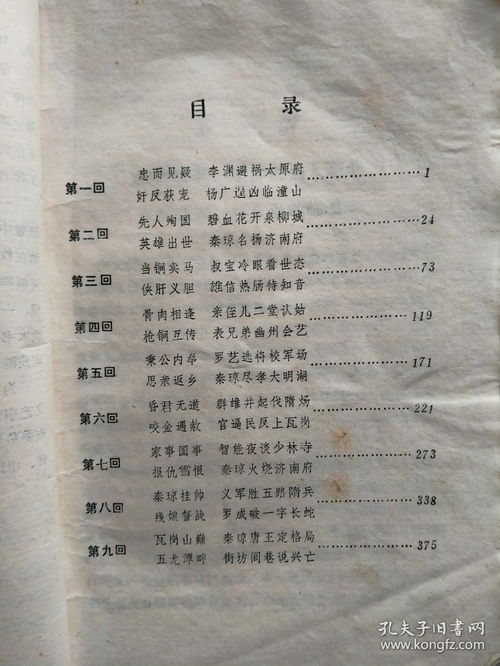 目 录
忠而见疑 李渊避祸太原府
第一回 ……………… 1
奸反获宠 杨广逞凶临潼山
先人殉国 碧血花开泉柳城
第二回 ……………… 24
英雄出世 秦琼名扬济南府
当锏卖马 叔宝冷眼看世态
第三回 ……………… 73
侠肝义胆 雄信热肠待知音
骨肉相逢 亲侄儿二堂认姑
第四回 ……………… 119
枪锏互传 表兄弟幽州会艺
秉公内举 罗艺选将校军场
第五回 ……………… 171
思亲返乡 秦琼尽孝大明湖
昏君无道 群雄并起伐隋炀
第六回 ……………… 221
咬金遇赦 官逼民反上瓦岗
家事国事 智能夜谈少林寺
第七回 ……………… 273
报仇雪恨 秦琼火烧济南府
秦琼挂帅 义军胜五路隋兵
第八回 ……………… 338
线娘督战 罗成破一字长蛇
瓦岗山巅 秦琼唐王定格局
第九回 ……………… 375
五龙潭畔 街坊闾巷说兴亡
孔夫子旧书网
www.kongfz.com